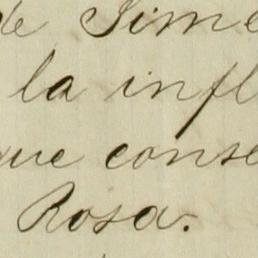 de Sime
la infl
que conse
Rosa.